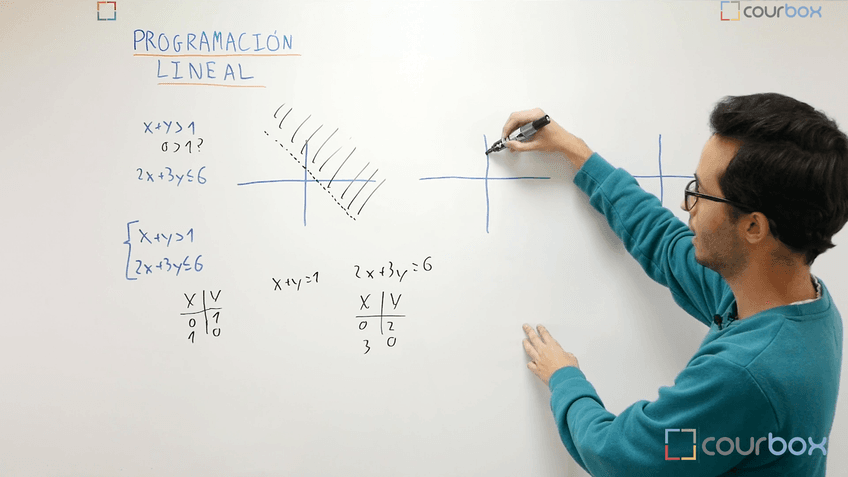 courbox
PROGRAMACIÓN
LINEAL
x+y>1
0>1?
2x+3y≤6
x+y>1
2x+3y≤6
x+y=1
2x+3y=6
X Y
0 1
1 0
X Y
0 2
3 0
courbox